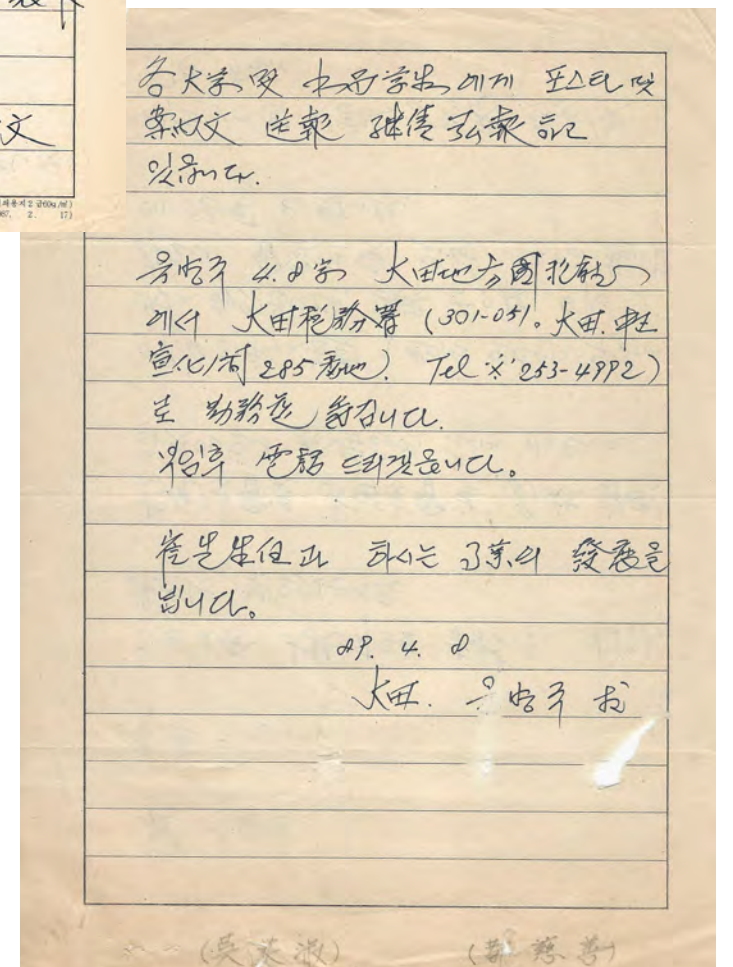 文
各大学 및 中高学生에게 포스터 및
案内文 送報 継続 弘報하고
있읍니다.
4.8字 大田地方國稅廳
에서 大田稅務署 (301-051. 大田. 中区
宣化洞 285番地). Tel ※ 253-4992)
로 勤務處 옮깁니다.
電話 드리겠읍니다.
崔先生任과 하시는 事業의 發展을
빕니다.
89. 4. 8
大田.